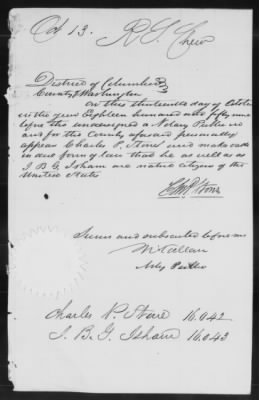 Oct 13. R. S. Chew
District of Columbia
County of Washington
On this thirteenth day of October
in the year Eighteen hundred and fifty nine
before the undersigned a Notary Public in
and for the County aforesaid personally
appear Charles P. Stone and made oath
in due form of law that he as well as
J B G Isham are native citizens of the
United States
Chas P. Stone
Sworn and subscribed before me
Noty Public
Charles P. Stone 16.042
J. B. G. Isham 16.043